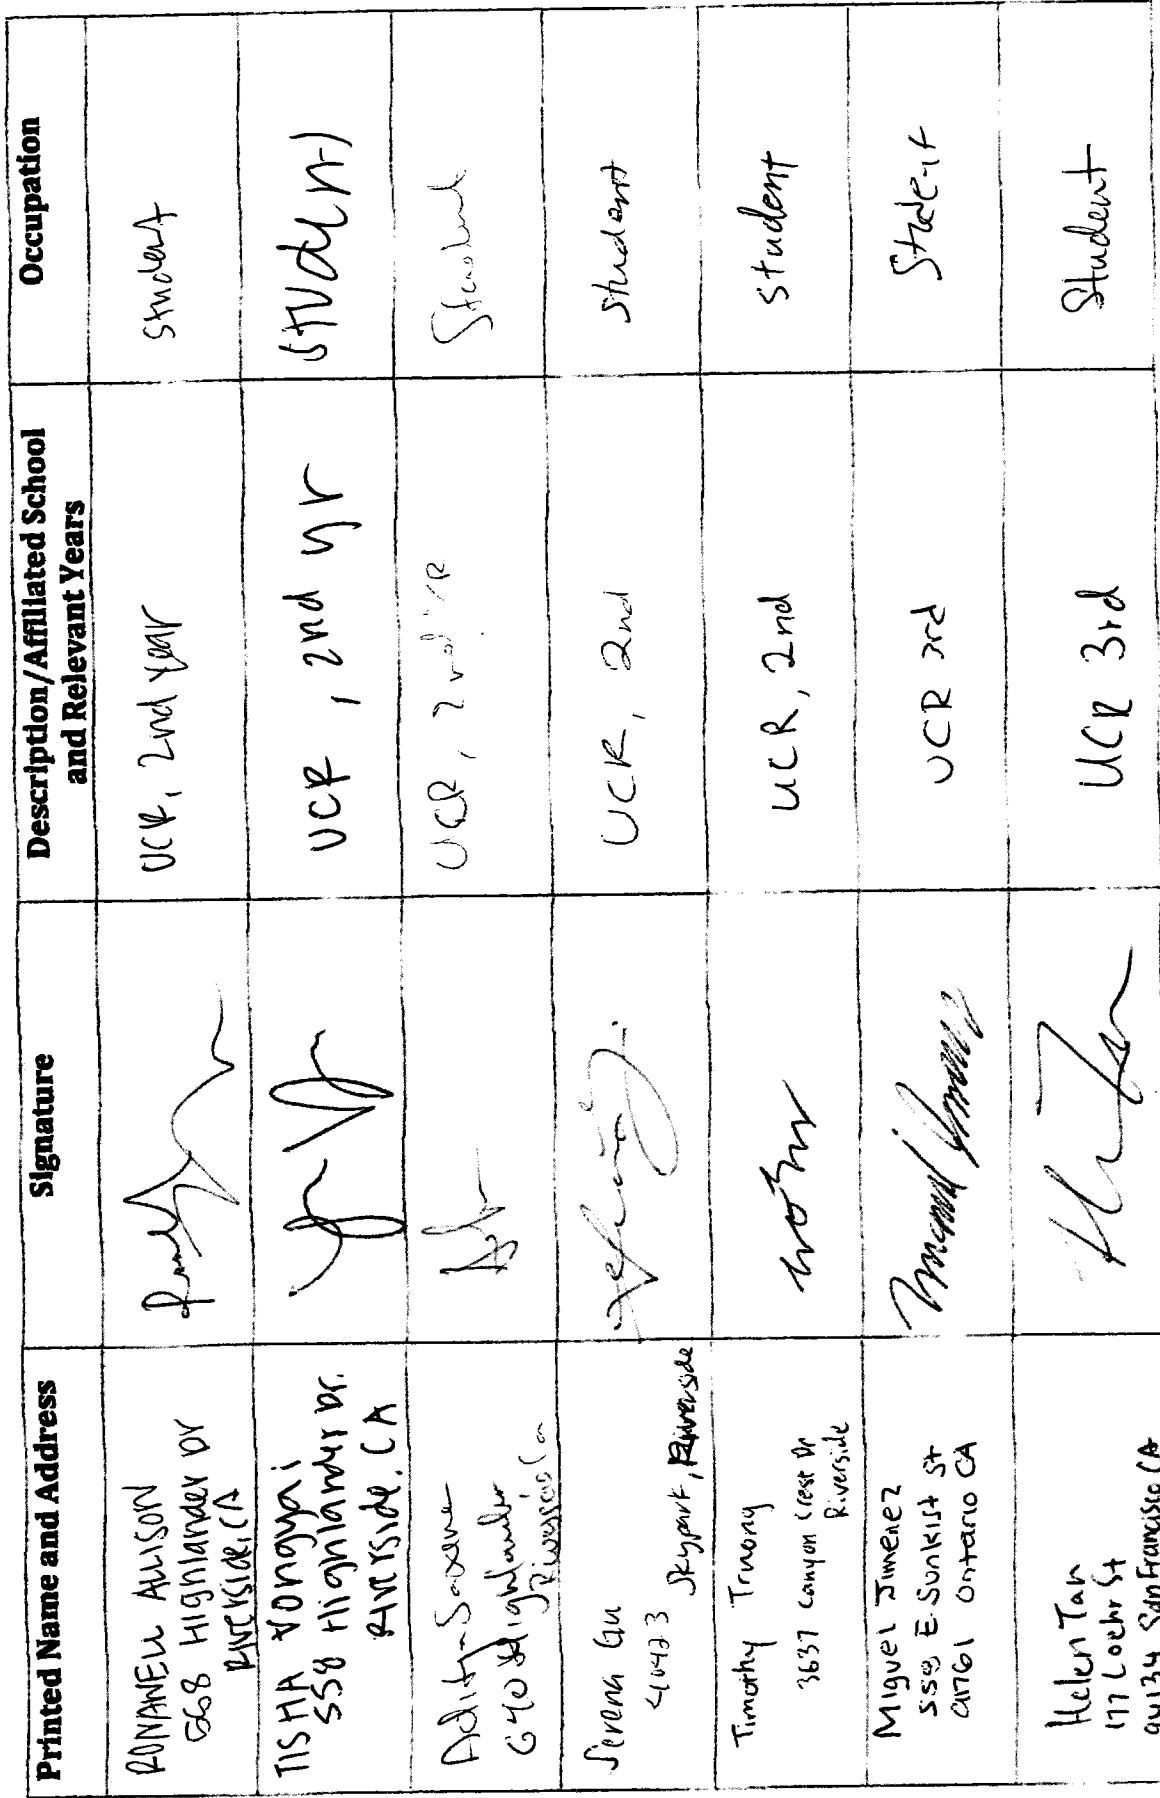 Printed Name and Address Signature Description/Affiliated School and Relevant Years Occupation
RONANELL ALLISON
568 Highlander Dr
Riverside, CA
UCR, 2nd year
student
TISHA VONGYAI
558 Highlander Dr.
Riverside, CA
UCR, 2nd yr
student
Aditya Saxene
Highlander
UCR, 2nd YR
Student
Serena Gu
Skypark, Riverside
UCR, 2nd
student
Timothy Truong
3637 Canyon Crest Dr
Riverside
UCR, 2nd
student
Miguel Jimenez
E. Sunkist St
91761 Ontario CA
UCR 3rd
Student
Helen Tan
177 Loehr St
94134 San Francisco CA
UCR 3rd
Student